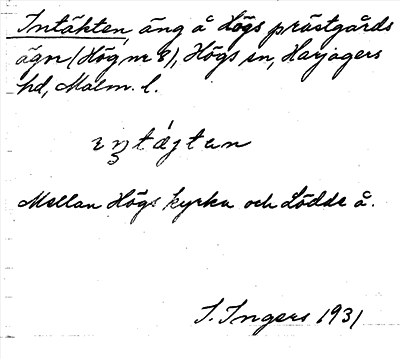 Intäkten, äng å Högs prästgårds
ägor (Hög nr 8), Högs sn, Harjagers
hd, Malm. l.
Mellan Högs kyrka och Lödde å.
I. Ingers 1931